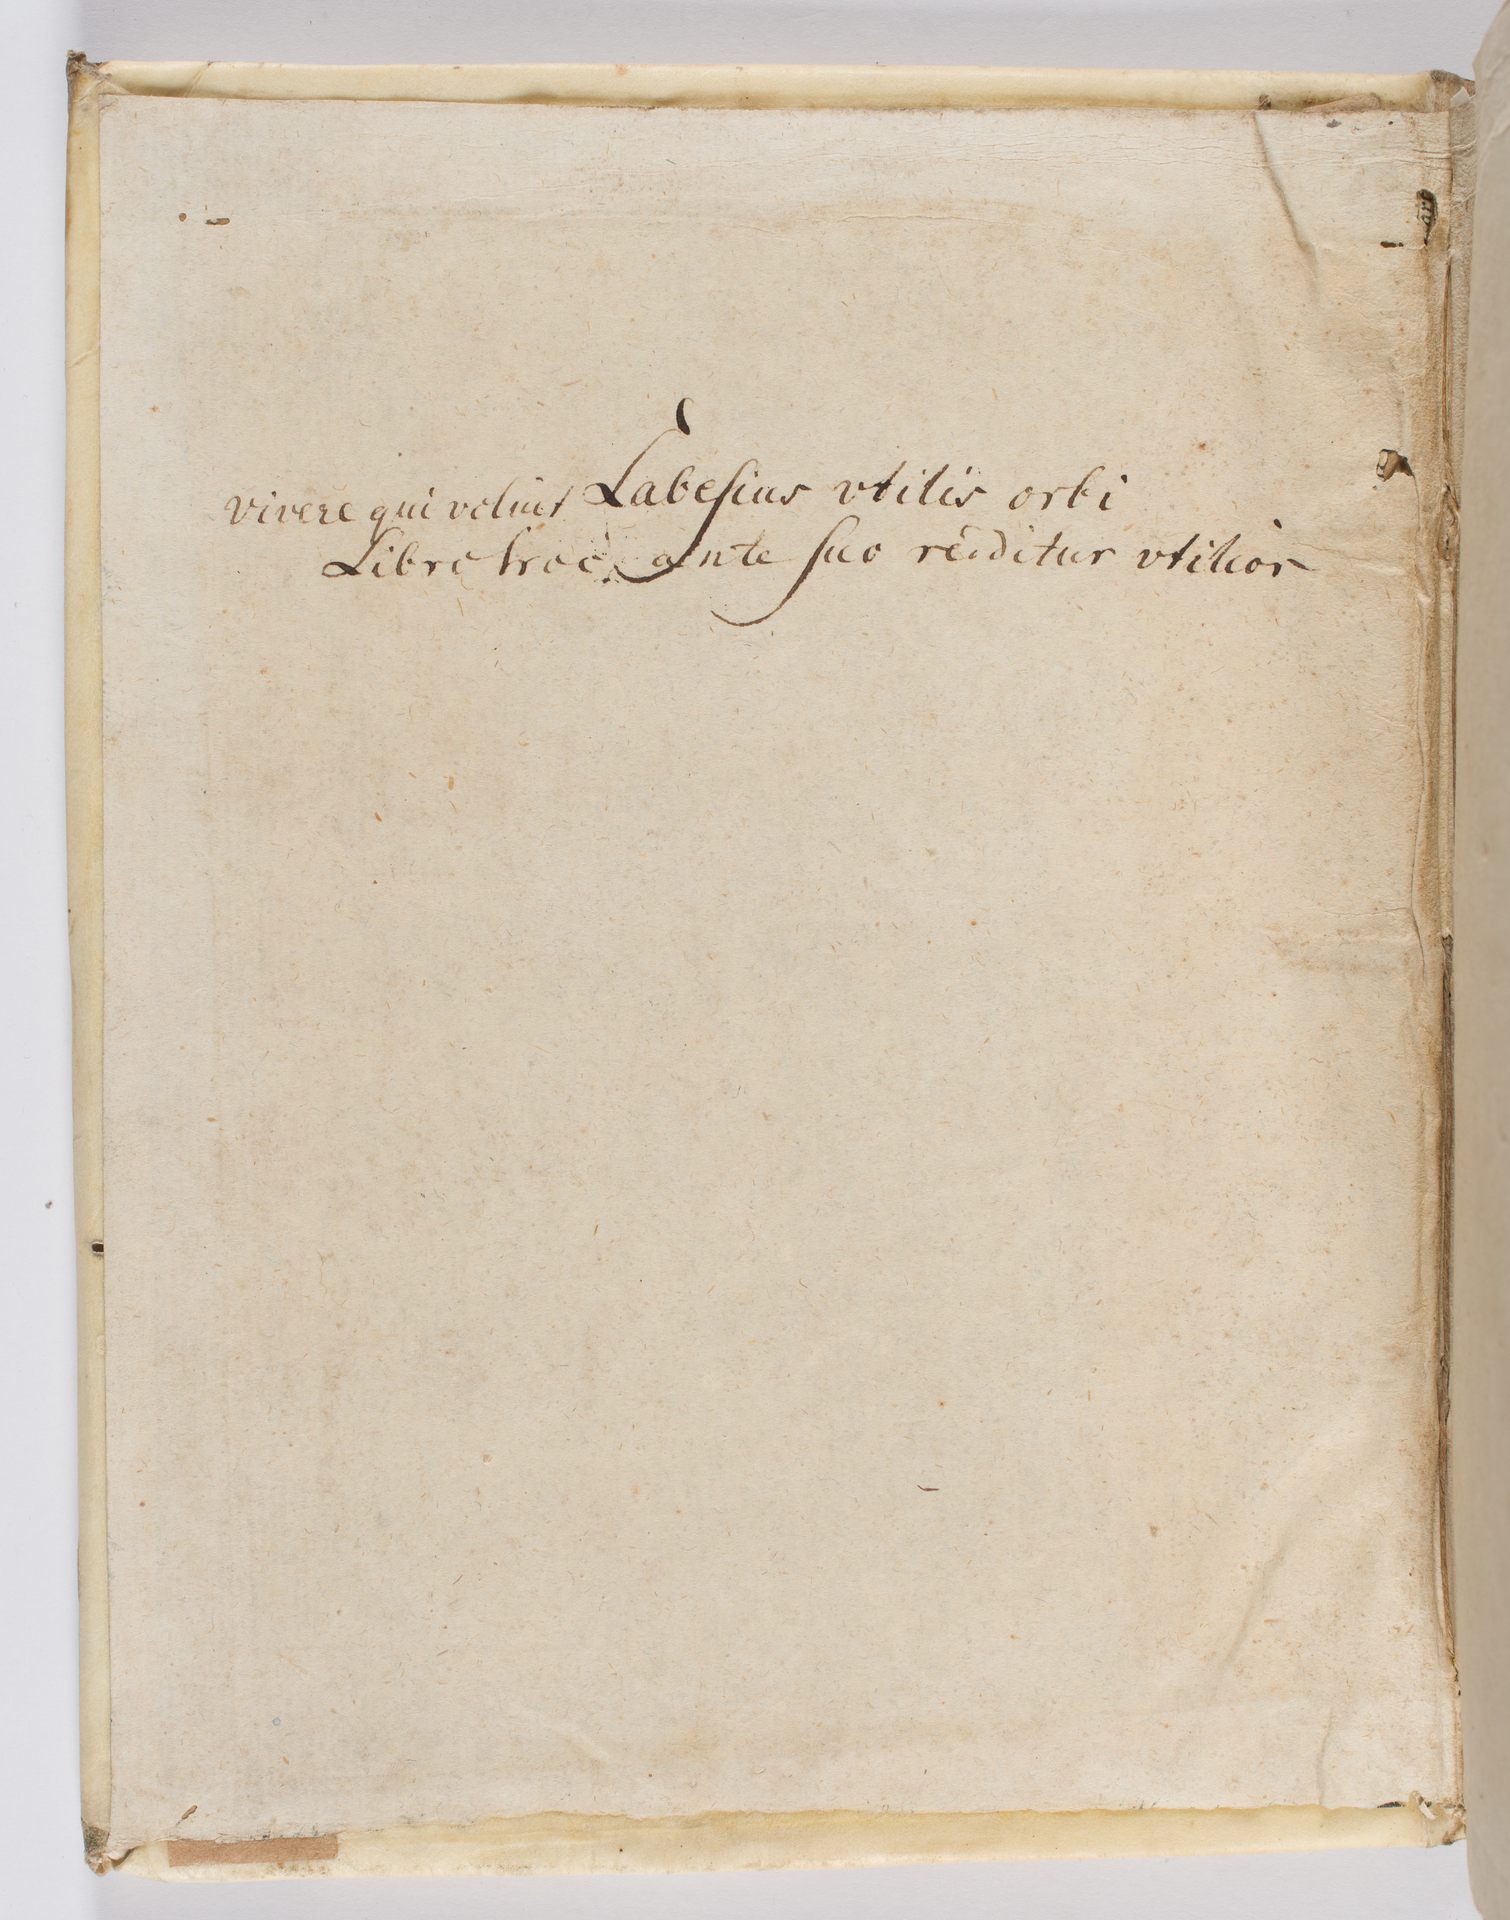 vivere qui voluit Labesius vtilis orbi
Libro hoc ante suo redditur vtilior